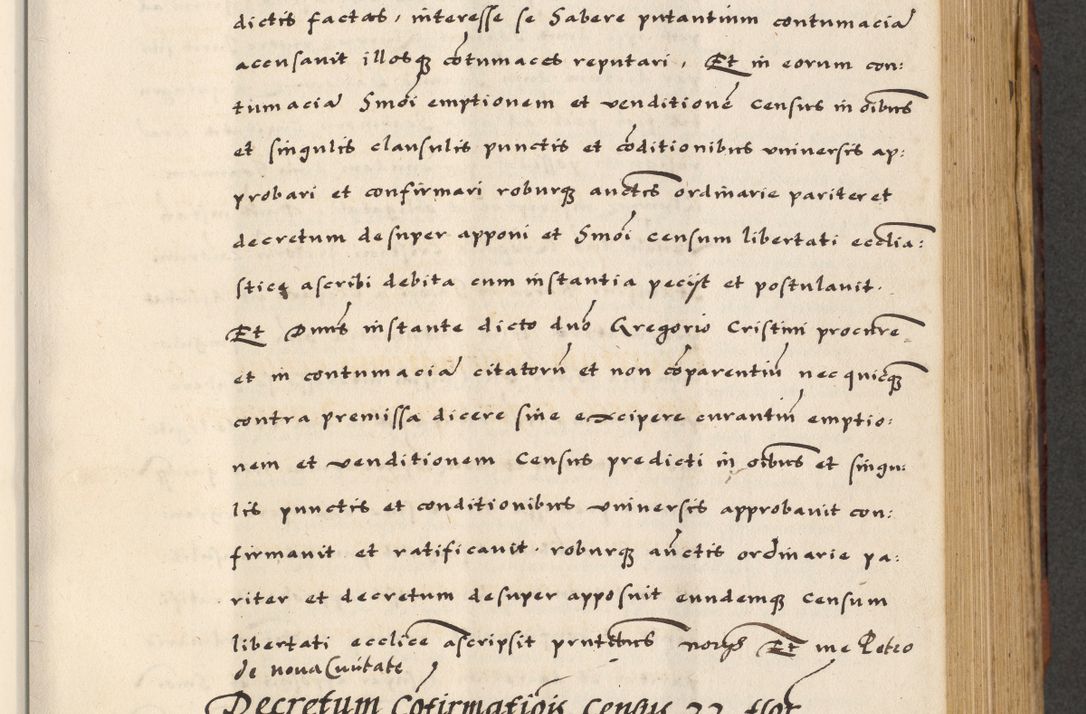 dictis factas, interesse se Habere putantium contumaciã
accusavit illosq; cõtumaces reputari, Et in eorum con:
tumaciã Hmõi emptionem et venditionẽ census in oĩbus
et singulis clausulis punctis et cõditionibus universis ap:
probari et confirmari roburq; auctts ordinarie pariter et
decretum desuper apponi et Hmõi censum libertati ecclia:
stice ascribi debita cum instantia peciit et postulavit.
Et Dnus instante dicto dño Gregorio Cristini procure
et in contumaciã citatorũ et non cõparentiũ nec quicq;
contra premissa dicere sive excipere curantiũ emptio:
nem et venditionem Census predicti in oĩbus et singu:
lis punctis et conditionibus universis approbavit con:
firmavit et ratificavit. roburq; auctts ordinarie pa:
riter et decretum desuper apposuit eundemq; censum
libertati ecclice ascripsit prnttbus Et me Petro
de nova Civitate
Decretum Cõfirmatiõis Census 22 flor